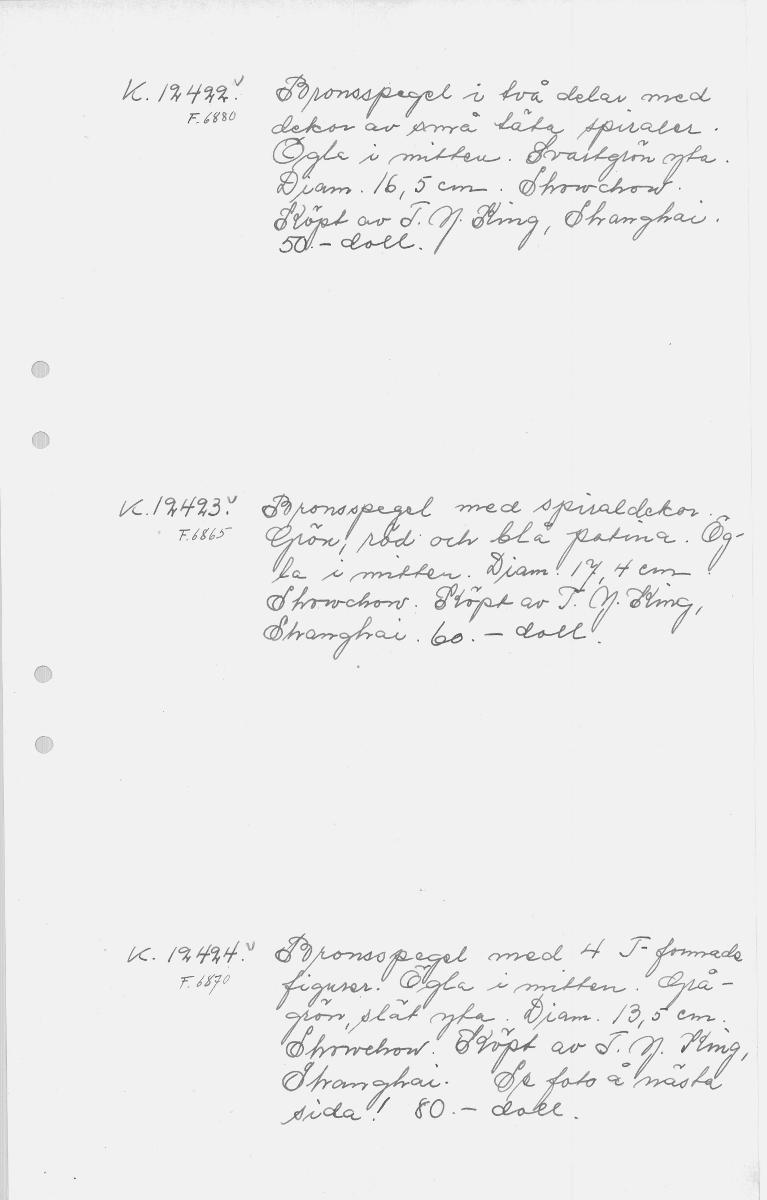 K. 12422. v Bronsspegel i två delar med
F. 6880 dekor av små täta spiraler.
Ögla i mitten. Svartgrön yta.
Diam. 16,5 cm. Showchow.
Köpt av T. Y. King, Shanghai.
50.- doll.
K. 12423. v Bronsspegel med spiraldekor.
F. 6865 Grön, röd och blå patina. Ög-
la i mitten. Diam. 17,4 cm.
Showchow. Köpt av T. Y. King,
Shanghai. 60.- doll.
K. 12424. v Bronsspegel med 4 T-formade
F. 6870 figurer. Ögla i mitten. Grå-
grön, slät yta. Diam. 13,5 cm.
Showchow. Köpt av T. Y. King,
Shanghai. Se foto å nästa
sida! 80.- doll.